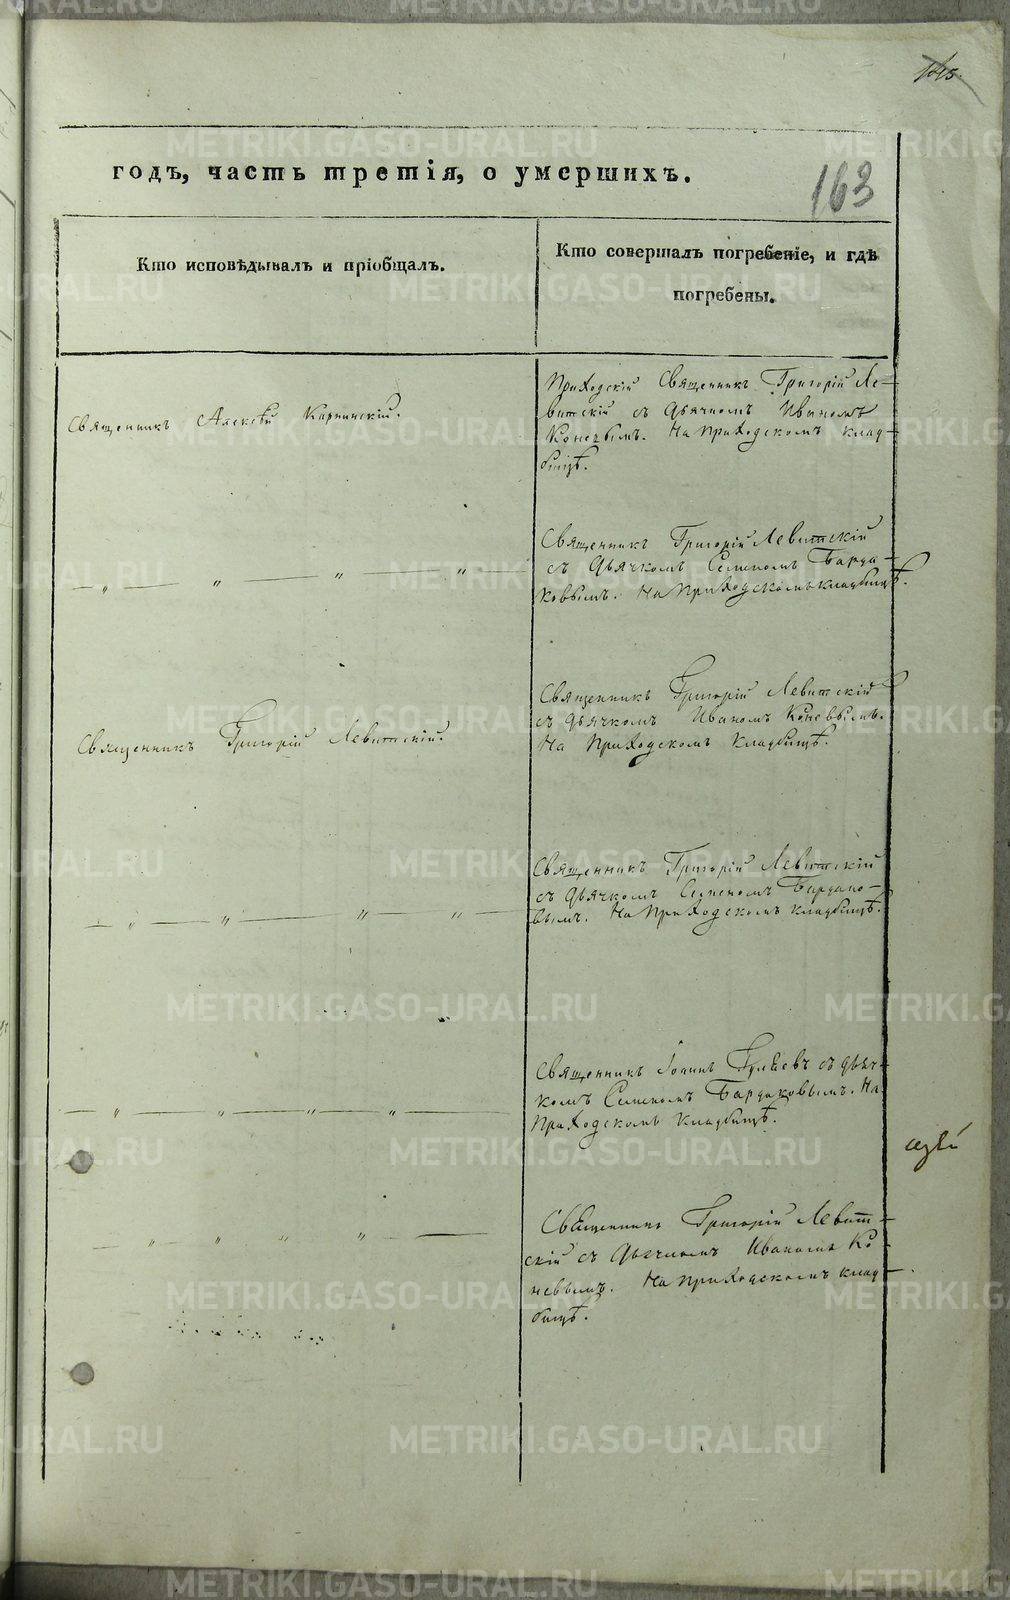 145.
годъ, часть третія, о умершихъ.
163
Кто исповѣдывалъ и пріобщалъ.
Кто совершалъ погребеніе, и гдѣ
погребены.
Священникъ Алексѣй Карпинскій.
Приходскій Священникъ Григорій Ле-
витскій съ дьячкомъ Иваномъ
Коневымъ. На приходскомъ клад-
бищѣ.
— „ — „ — „ — „ —
Священникъ Григорій Левитскій
съ дьячкомъ Семеномъ Барда-
ковымъ. На приходскомъ кладбищѣ.
Священникъ Григорій Левитскій.
Священникъ Григорій Левитскій
съ дьячкомъ Иваномъ Коневымъ.
На приходскомъ кладбищѣ.
— „ — „ — „ — „ —
Священникъ Григорій Левитскій
съ дьячкомъ Семеномъ Бардако-
вымъ. На приходскомъ кладбищѣ.
— „ — „ — „ — „ —
Священникъ Іоаннъ съ дьяч-
комъ Семеномъ Бардаковымъ. На
приходскомъ кладбищѣ.
— „ — „ — „ — „ —
Священникъ Григорій Левит-
скій съ дьячкомъ Иваномъ Ко-
невымъ. На приходскомъ клад-
бищѣ.
METRIKI.GASO-URAL.RU